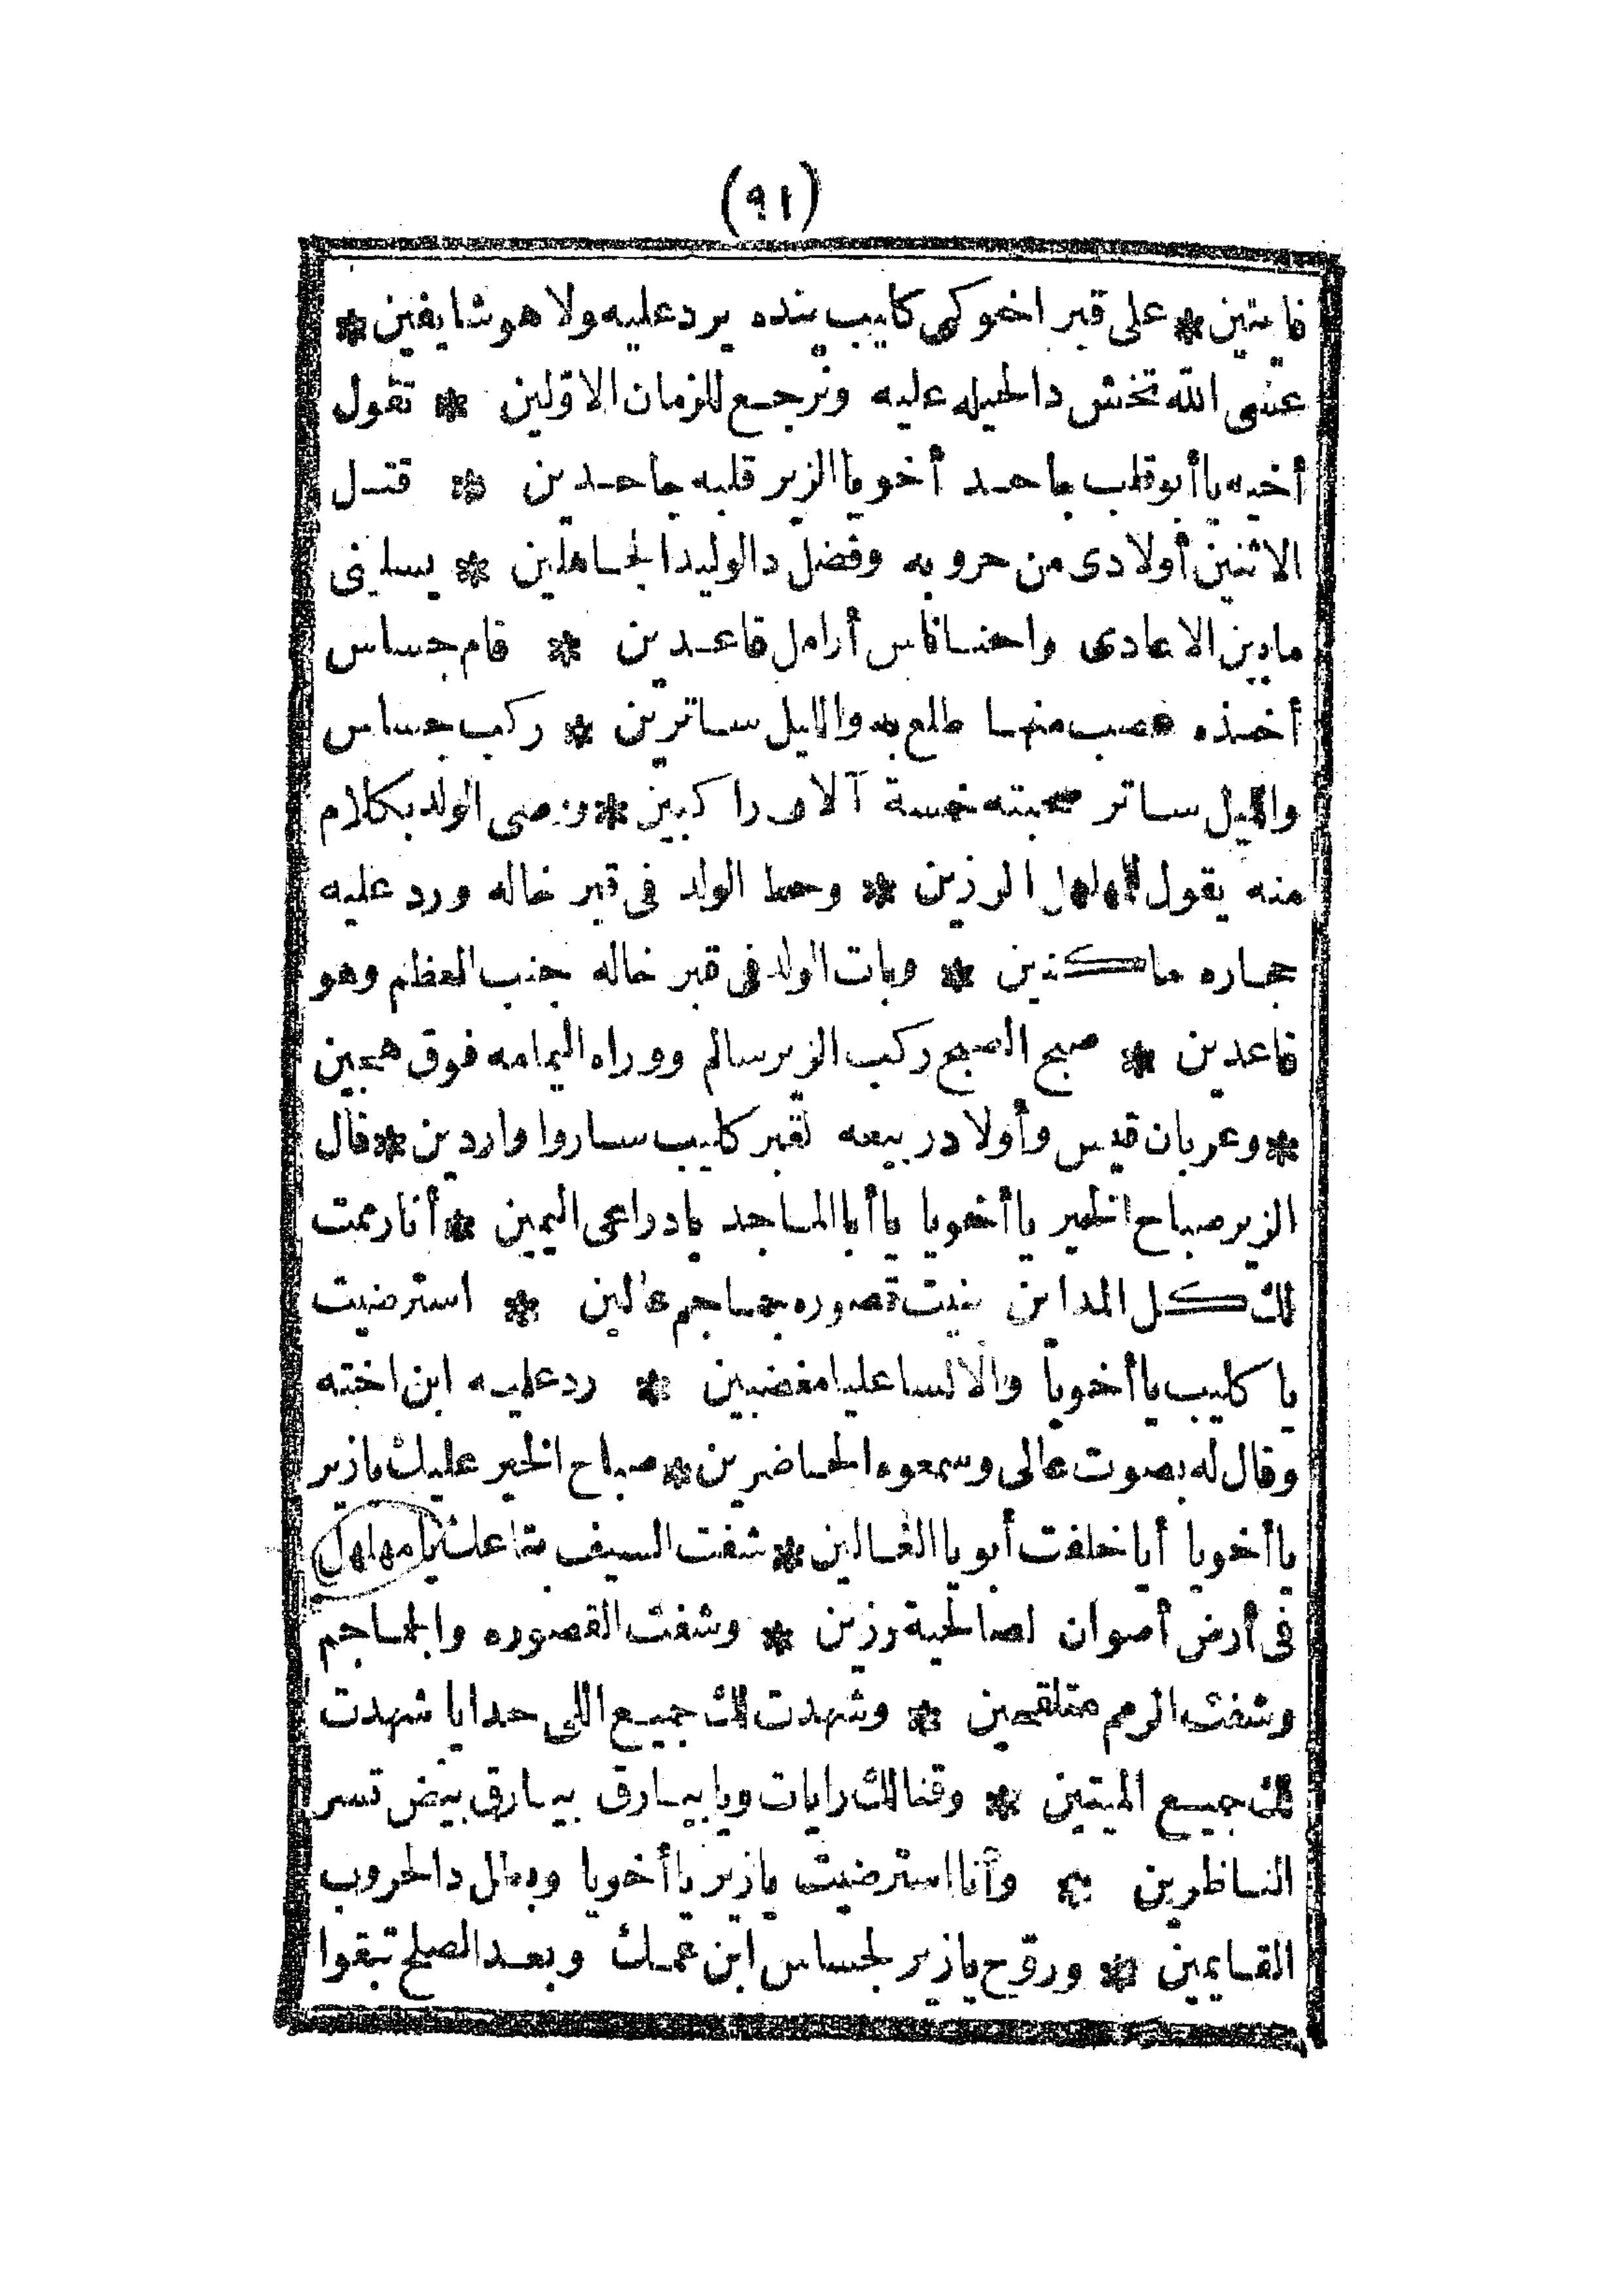 (٩١)
فايتين * على قبر اخوكى كليب ينده يرد عليه ولا هو شايفين *
عسى الله تخش دالحيله عليه ونرجع للزمان الاوّلين * تقول
أخيه يا أبو قلب جاحد أخويا الزير قلبه جاحدين * قتل
الاثنين أولادى من حروبه وفضل دالوليد الجاهلين * يسلبنى
مابين الاعادى واحنا ناس أرامل قاعدين * قام جساس
أخذه غصب منها طلع به والليل ساترين * ركب جساس
والليل ساتر صحبته خمسة آلاف راكبين * ووصى الولد بكلام
منه يقول للمهلهل الرزين * وحط الولد فى قبر خاله ورد عليه
حجاره ماكنين * وبات الولد فى قبر خاله جنب العظم وهو
قاعدين * صبح الصبح ركب الزير سالم ووراه اليمامه فوق هجين
* وعربان قيس وأولاد ربيعه لقبر كليب ساروا واردين * قال
الزير صباح الخير يا أخويا يا أبا الماجد يا دراعى اليمين * أنا رممت
لك كل المداين بنيت قصوره بجماجم عالين * استرضيت
يا كليب يا أخويا والا لسا عليا مغضبين * رد عليه ابن اخته
وقال له بصوت عالى وسمعوه الحاضرين * صباح الخير عليك يازير
يا أخويا أيا خلفت أبويا الغالين * شفت السيف بتاعك يا مهلهل
فى أرض أصوان لصالحية رزين * وشفت القصوره والجماجم
وشفت الرمم متلقحين * وشهدت لك جميع اللى حدايا شهدت
لك جميع الميتين * وقنا لك رايات ويا بيارق بيارق بيض تسر
الناظرين * وأنا استرضيت يازير يا أخويا وبطل دالحروب
القايمين * وروّح يازير لجساس ابن عمك وبعد الصلح تبقوا